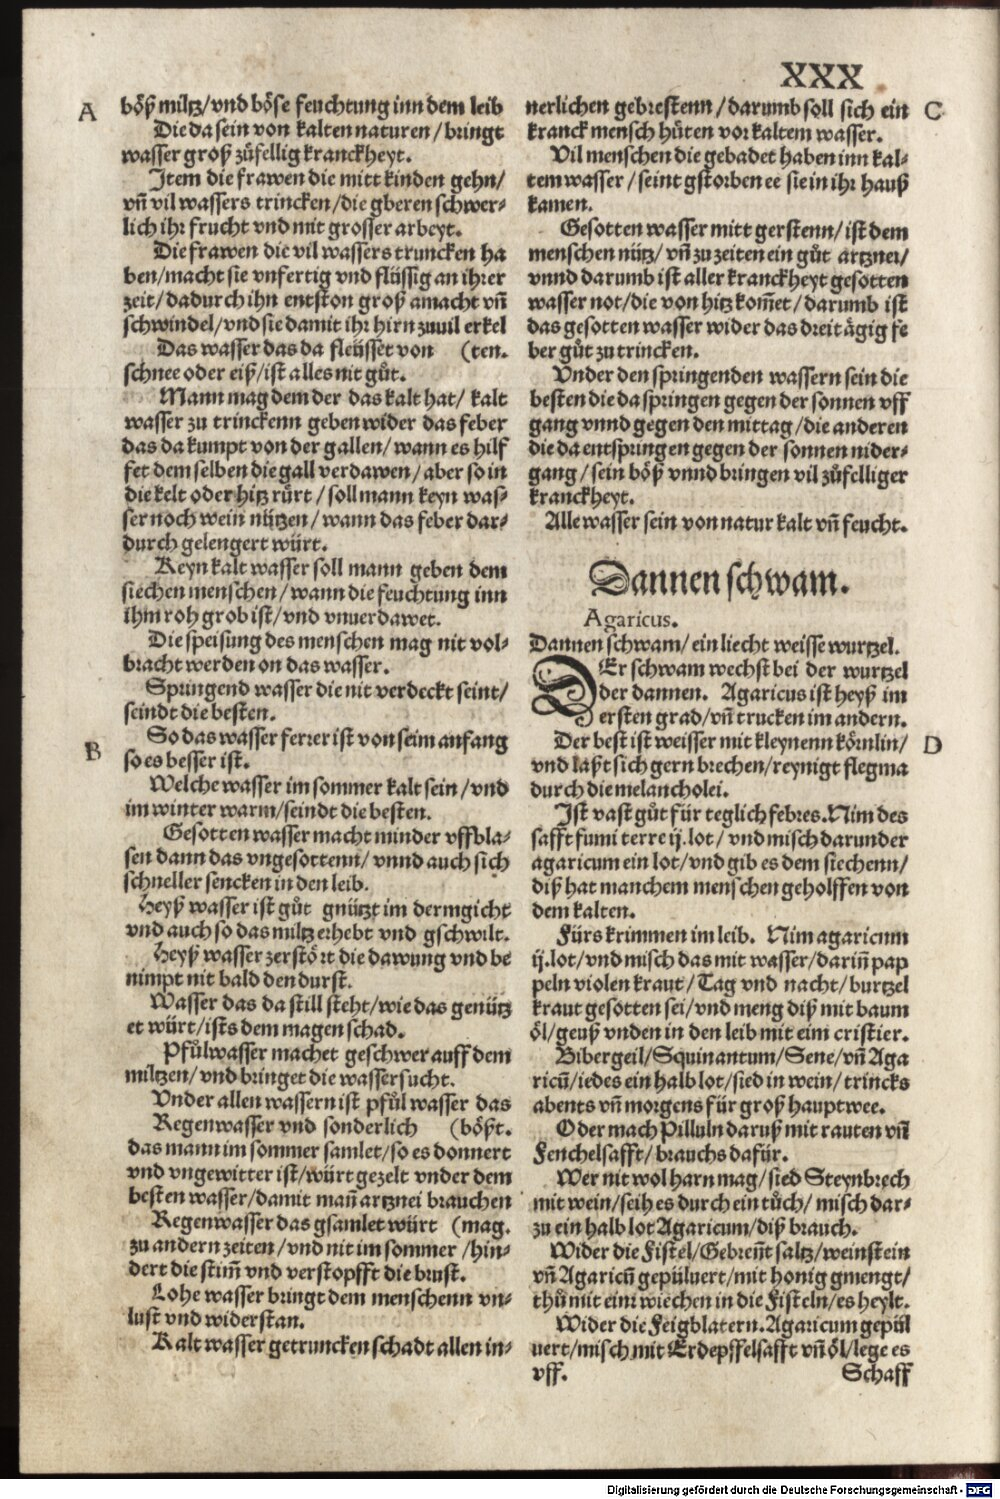 XXX
A
böß miltz/vnd böse feuchtung inn dem leib
Die da sein von kalten naturen/bringt
wasser groß zůfellig kranckheyt.
Item die frawen die mitt kinden gehn/
vñ vil wassers trincken/die gberen schwer-
lich ihr frucht vnd mit grosser arbeyt.
Die frawen die vil wassers truncken ha
ben/macht sie vnfertig vnd flüssig an ihrer
zeit/dadurch ihn entston groß amacht vñ
schwindel/vnd sie damit ihr hirn zuuil erkel
Das wasser das da fleüsset von (ten.
schnee oder eiß/ist alles nit gůt.
Mann mag dem der das kalt hat/ kalt
wasser zu trinckenn geben wider das feber
das da kumpt von der gallen/wann es hilf
fet dem selben die gall verdawen/aber so in
die kelt oder hitz rürt/soll mann keyn was-
ser noch wein nützen/wann das feber dar-
durch gelengert würt.
Keyn kalt wasser soll mann geben dem
siechen menschen/wann die feuchtung inn
ihm roh grob ist/vnd vnuerdawet.
Die speisung des menschen mag nit vol-
bracht werden on das wasser.
Springend wasser die nit verdeckt seint/
seindt die besten.
B
So das wasser ferrer ist von seim anfang
so es besser ist.
Welche wasser im sommer kalt sein/vnd
im winter warm/seindt die besten.
Gesotten wasser macht minder vffbla-
sen dann das vngesottenn/vnnd auch sich
schneller sencken in den leib.
Heyß wasser ist gůt gnützt im dermgicht
vnd auch so das miltz erhebt vnd gschwilt.
Heyß wasser zerstört die dawung vnd be
nimpt nit bald den durst.
Wasser das da still steht/wie das genütz
et würt/ists dem magen schad.
Pfůlwasser machet geschwer auff dem
miltzen/vnd bringet die wassersucht.
Vnder allen wassern ist pfůl wasser das
Regenwasser vnd sonderlich (bößt.
das mann im sommer samlet/so es donnert
vnd vngewitter ist/würt gezelt vnder dem
besten wasser/damit mañ artznei brauchen
Regenwasser das gsamlet würt (mag.
zu andern zeiten/vnd nit im sommer/hin-
dert die stim̃ vnd verstopfft die brust.
Lohe wasser bringt dem menschenn vn-
lust vnd widerstan.
Kalt wasser getruncken schadt allen in-
C
nerlichen gebrestenn/darumb soll sich ein
kranck mensch hüten vor kaltem wasser.
Vil menschen die gebadet haben inn kal-
tem wasser/seint gstorben ee sie in ihr hauß
kamen.
Gesotten wasser mitt gerstenn/ist dem
menschen nütz/vñ zu zeiten ein gůt artznei/
vnnd darumb ist aller kranckheyt gesotten
wasser not/die von hitz kom̃et/darumb ist
das gesotten wasser wider das dreitägig fe
ber gůt zu trincken.
Vnder den springenden wassern sein die
besten die da springen gegen der sonnen vff
gang vnnd gegen den mittag/die anderen
die da entspringen gegen der sonnen nider-
gang/sein böß vnnd bringen vil zůfelliger
kranckheyt.
Alle wasser sein von natur kalt vñ feucht.
Dannen schwam.
Agaricus.
Dannen schwam/ein liecht weisse wurtzel.
DEr schwam wechst bei der wurtzel
der dannen. Agaricus ist heyß im
ersten grad/vñ trucken im andern.
D
Der best ist weisser mit kleynenn körnlin/
vnd laßt sich gern brechen/reynigt flegma
durch die melancholei.
Ist vast gůt für teglich febres. Nim des
safft fumi terre ij. lot/vnd misch darunder
agaricum ein lot/vnd gib es dem siechenn/
diß hat manchem menschen geholffen von
dem kalten.
Fürs krimmen im leib. Nim agaricum
ij. lot/vnd misch das mit wasser/dariñ pap
peln violen kraut/Tag vnd nacht/burtzel
kraut gesotten sei/vnd meng diß mit baum
öl/geuß vnden in den leib mit eim cristier.
Bibergeil/Squinantum/Sene/vñ Aga
ricũ/iedes ein halb lot/sied in wein/trincks
abents vñ morgens für groß hauptwee.
Oder mach Pilluln daruß mit rauten vñ
Fenchelsafft/brauchs dafür.
Wer nit wol harn mag/sied Steynbrech
mit wein/seih es durch ein tůch/misch dar-
zu ein halb lot Agaricum/diß brauch.
Wider die Fistel/Gebreñt saltz/weinstein
vñ Agaricũ gepüluert/mit honig gmengt/
thů mit eim wiechen in die Fisteln/es heylt.
Wider die Feigblatern. Agaricum gepül
uert/misch mit Erdepffelsafft vñ öl/lege es
vff. Schaff
Digitalisierung gefördert durch die Deutsche Forschungsgemeinschaft - DFG